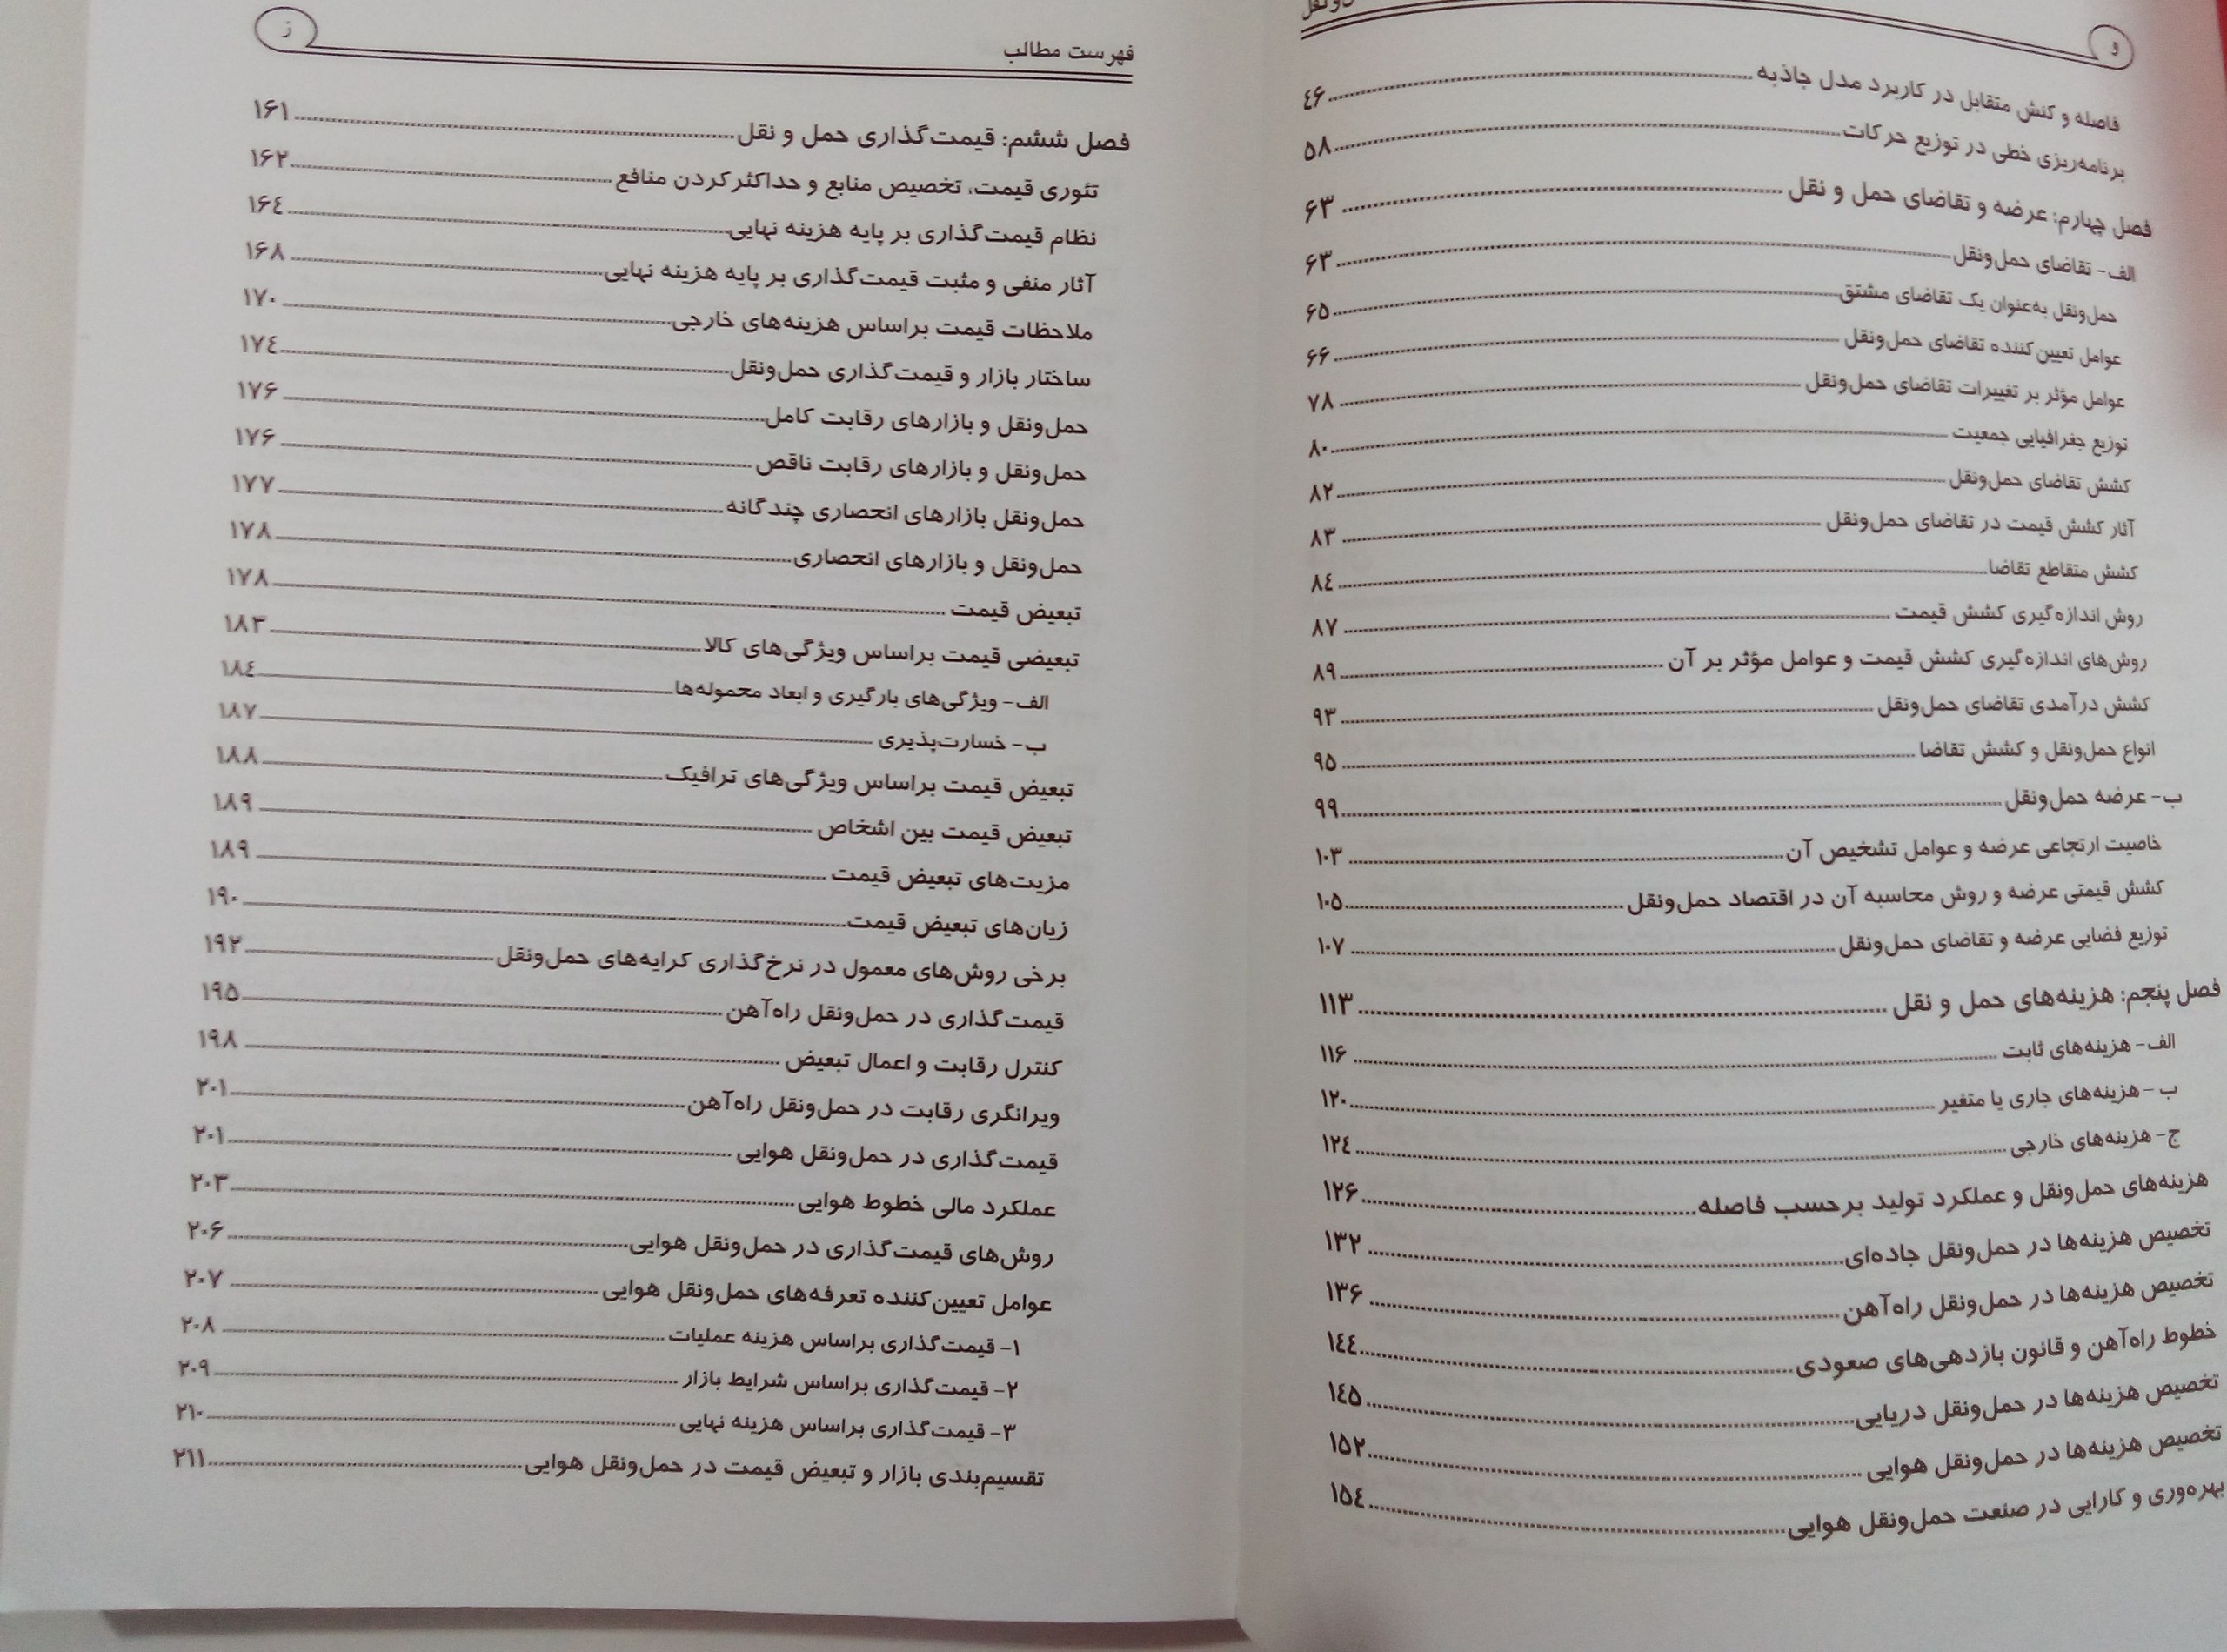 و
ونقل
فاصله و کنش متقابل در کاربرد مدل جاذبه ........ ٤۶
برنامه‌ریزی خطی در توزیع حرکات ........ ۵۸
فصل چهارم: عرضه و تقاضای حمل و نقل ........ ۶۳
الف- تقاضای حمل‌ونقل ........ ۶۳
حمل‌ونقل به‌عنوان یک تقاضای مشتق ........ ۶۵
عوامل تعیین‌کننده تقاضای حمل‌ونقل ........ ۶۶
عوامل مؤثر بر تغییرات تقاضای حمل‌ونقل ........ ۷۸
توزیع جغرافیایی جمعیت ........ ۸۰
کشش تقاضای حمل‌ونقل ........ ۸۲
آثار کشش قیمت در تقاضای حمل‌ونقل ........ ۸۳
کشش متقاطع تقاضا ........ ۸٤
روش اندازه‌گیری کشش قیمت ........ ۸۷
روش‌های اندازه‌گیری کشش قیمت و عوامل مؤثر بر آن ........ ۸۹
کشش درآمدی تقاضای حمل‌ونقل ........ ۹۳
انواع حمل‌ونقل و کشش تقاضا ........ ۹۵
ب- عرضه حمل‌ونقل ........ ۹۹
خاصیت ارتجاعی عرضه و عوامل تشخیص آن ........ ۱۰۳
کشش قیمتی عرضه و روش محاسبه آن در اقتصاد حمل‌ونقل ........ ۱۰۵
توزیع فضایی عرضه و تقاضای حمل‌ونقل ........ ۱۰۷
فصل پنجم: هزینه‌های حمل و نقل ........ ۱۱۳
الف- هزینه‌های ثابت ........ ۱۱۶
ب- هزینه‌های جاری یا متغیر ........ ۱۲۰
ج- هزینه‌های خارجی ........ ۱۲٤
هزینه‌های حمل‌ونقل و عملکرد تولید برحسب فاصله ........ ۱۲۶
تخصیص هزینه‌ها در حمل‌ونقل جاده‌ای ........ ۱۳۲
تخصیص هزینه‌ها در حمل‌ونقل راه‌آهن ........ ۱۳۶
خطوط راه‌آهن و قانون بازدهی‌های صعودی ........ ۱٤٤
تخصیص هزینه‌ها در حمل‌ونقل دریایی ........ ۱٤۵
تخصیص هزینه‌ها در حمل‌ونقل هوایی ........ ۱۵۲
بهره‌وری و کارایی در صنعت حمل‌ونقل هوایی ........ ۱۵٤
فهرست مطالب
ز
فصل ششم: قیمت‌گذاری حمل و نقل ........ ۱۶۱
تئوری قیمت، تخصیص منابع و حداکثرکردن منافع ........ ۱۶۲
نظام قیمت‌گذاری بر پایه هزینه نهایی ........ ۱۶٤
آثار منفی و مثبت قیمت‌گذاری بر پایه هزینه نهایی ........ ۱۶۸
ملاحظات قیمت براساس هزینه‌های خارجی ........ ۱۷۰
ساختار بازار و قیمت‌گذاری حمل‌ونقل ........ ۱۷٤
حمل‌ونقل و بازارهای رقابت کامل ........ ۱۷۶
حمل‌ونقل و بازارهای رقابت ناقص ........ ۱۷۶
حمل‌ونقل بازارهای انحصاری چندگانه ........ ۱۷۷
حمل‌ونقل و بازارهای انحصاری ........ ۱۷۸
تبعیض قیمت ........ ۱۷۸
تبعیضی قیمت براساس ویژگی‌های کالا ........ ۱۸۳
الف- ویژگی‌های بارگیری و ابعاد محموله‌ها ........ ۱۸٤
ب- خسارت‌پذیری ........ ۱۸۷
تبعیض قیمت براساس ویژگی‌های ترافیک ........ ۱۸۸
تبعیض قیمت بین اشخاص ........ ۱۸۹
مزیت‌های تبعیض قیمت ........ ۱۸۹
زیان‌های تبعیض قیمت ........ ۱۹۰
برخی روش‌های معمول در نرخ‌گذاری کرایه‌های حمل‌ونقل ........ ۱۹۲
قیمت‌گذاری در حمل‌ونقل راه‌آهن ........ ۱۹۵
کنترل رقابت و اعمال تبعیض ........ ۱۹۸
ویرانگری رقابت در حمل‌ونقل راه‌آهن ........ ۲۰۱
قیمت‌گذاری در حمل‌ونقل هوایی ........ ۲۰۱
عملکرد مالی خطوط هوایی ........ ۲۰۳
روش‌های قیمت‌گذاری در حمل‌ونقل هوایی ........ ۲۰۶
عوامل تعیین‌کننده تعرفه‌های حمل‌ونقل هوایی ........ ۲۰۷
۱- قیمت‌گذاری براساس هزینه عملیات ........ ۲۰۸
۲- قیمت‌گذاری براساس شرایط بازار ........ ۲۰۹
۳- قیمت‌گذاری براساس هزینه نهایی ........ ۲۱۰
تقسیم‌بندی بازار و تبعیض قیمت در حمل‌ونقل هوایی ........ ۲۱۱